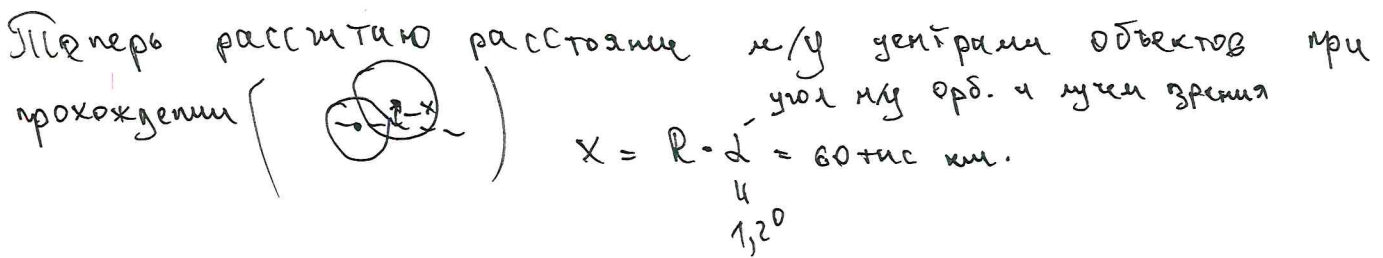 Теперь рассчитаю расстояние м/у центрами объектов при
прохождении ( -x )
угол м/у орб. и лучем зрения
X = R · α = 60 тыс км.
1,2°